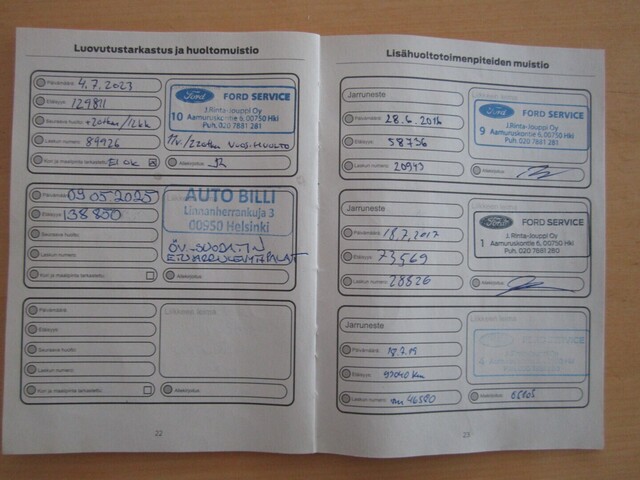 Luovutustarkastus ja huoltomuistio
Päivämäärä: 4.7.2023
Etäisyys: 129811
Seuraava huolto: +20tkm/12kk
Laskun numero: 84926
Kori ja maalipinta tarkastettu: EI OK
Ford FORD SERVICE
10 J.Rinta-Jouppi Oy
Aamuruskontie 6, 00750 Hki
Puh. 020 7881 281
VUOSIHUOLTO
Allekirjoitus:
Päivämäärä: 09.05.2025
Etäisyys: 138850
Seuraava huolto:
Laskun numero:
Kori ja maalipinta tarkastettu:
AUTO BILLI
Linnanherrankuja 3
00950 Helsinki
ÖV-SUODATIN
ETUJARRULEVYT+PALAT
Allekirjoitus:
Päivämäärä:
Etäisyys:
Seuraava huolto:
Laskun numero:
Kori ja maalipinta tarkastettu:
Liikkeen leima
Allekirjoitus:
22
Lisähuoltotoimenpiteiden muistio
Jarruneste
Päivämäärä: 28.6.2016
Etäisyys: 58736
Laskun numero: 20943
Ford FORD SERVICE
9 J.Rinta-Jouppi Oy
Aamuruskontie 6, 00750 Hki
Puh. 020 7881 281
Allekirjoitus:
Jarruneste
Päivämäärä: 18.7.2017
Etäisyys: 73569
Laskun numero: 28826
Ford FORD SERVICE
1 J.Rinta-Jouppi Oy
Aamuruskontie 6, 00750 Hki
Puh. 020 7881 280
Allekirjoitus:
Jarruneste
Päivämäärä:
Etäisyys:
Laskun numero: 46580
Liikkeen leima
FORD SERVICE
Allekirjoitus:
23